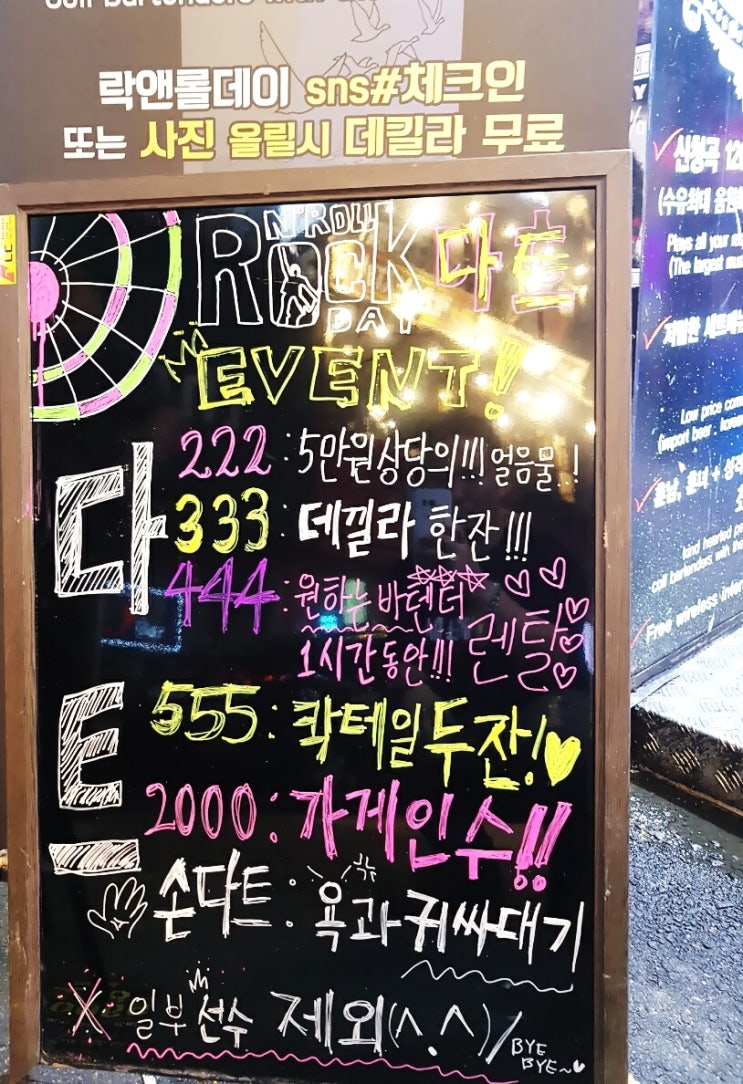 락앤롤데이 sns#체크인
또는 사진 올릴시 데킬라 무료
ROCK
N'ROLL
DAY
다트
EVENT!
다트
222 : 5만원상당의!!! 얼음물..!
333 : 데낄라 한잔!!!
444 : 원하는 바텐터
1시간동안!!! 렌탈
555 : 칵테일두잔!
2000 : 가게인수!!
손다트 : 욕과 귀싸대기
X 일부 선수 제외(^.^)/
BYE
BYE~
신청곡
(수유최대 음원
Plays all your
(The largest
저렴한 세트메뉴
Low price
(import beer :
훈남, 훈녀 +
kind hearted
coll bartenders with
Free wireless